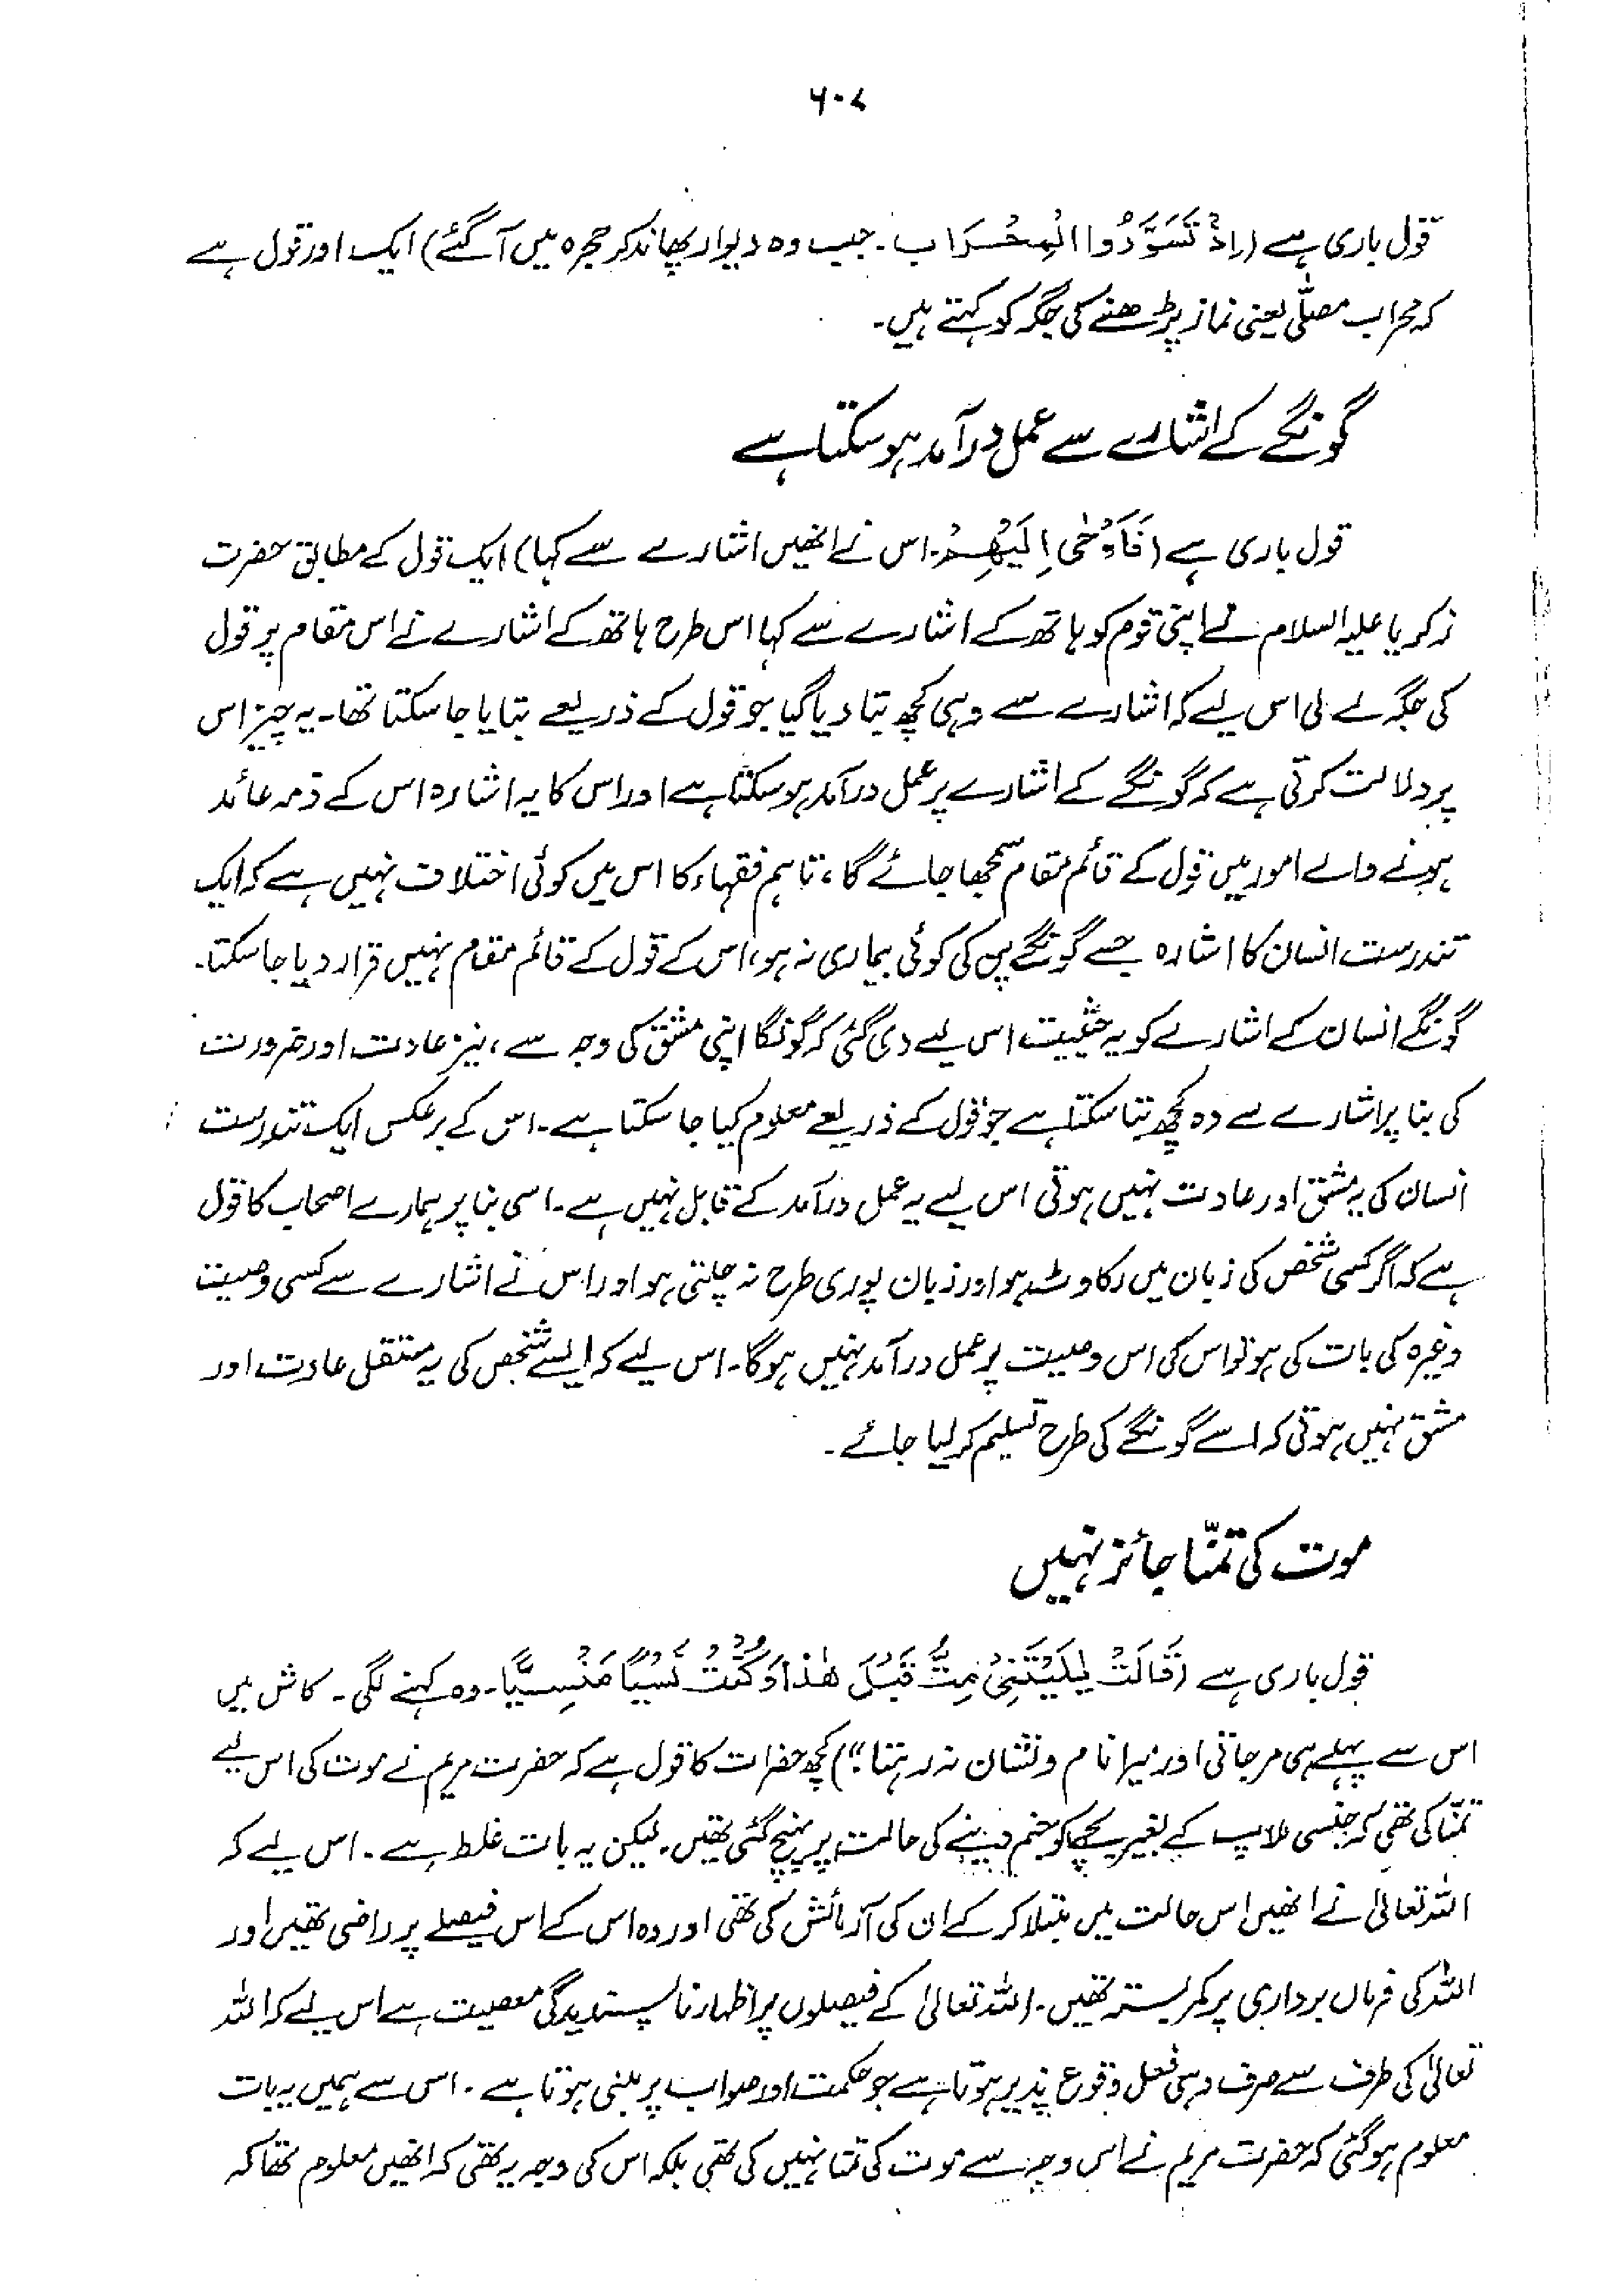 ۶۰۷
قول باری ہے (اِذْ تَسَوَّرُوا الْمِحْرَاب۔ جب وہ دیوار پھاند کر حجرہ میں آگئے) ایک اور قول ہے
کہ محراب مصلّٰی یعنی نماز پڑھنے کی جگہ کو کہتے ہیں۔
گونگے کے اشارے سے عمل درآمد ہو سکتا ہے
قول باری ہے (فَاَوْحٰی اِلَیْھِمْ۔ اس نے انھیں اشارے سے کہا) ایک قول کے مطابق حضرت
زکریا علیہ السلام نے اپنی قوم کو ہاتھ کے اشارے سے کہا اس طرح ہاتھ کے اشارے نے اس مقام پر قول
کی جگہ لے لی اس لیے کہ اشارے سے وہی کچھ بتا دیا گیا جو قول کے ذریعے بتایا جا سکتا تھا۔ یہ چیز اس
پر دلالت کرتی ہے کہ گونگے کے اشارے پر عمل درآمد ہو سکتا ہے اور اس کا یہ اشارہ اس کے ذمہ عائد
ہونے والے امور میں قول کے قائم مقام سمجھا جائے گا، تاہم فقہاء کا اس میں کوئی اختلاف نہیں ہے کہ ایک
تندرست انسان کا اشارہ جسے گونگے پن کی کوئی بیماری نہ ہو، اس کے قول کے قائم مقام نہیں قرار دیا جا سکتا۔
گونگے انسان کے اشارے کو یہ حیثیت اس لیے دی گئی کہ گونگا اپنی مشق کی وجہ سے، نیز عادت اور ضرورت
کی بنا پر اشارے سے وہ کچھ بتا سکتا ہے جو قول کے ذریعے معلوم کیا جا سکتا ہے۔ اس کے برعکس ایک تندرست
انسان کی یہ مشق اور عادت نہیں ہوتی اس لیے یہ عمل درآمد کے قابل نہیں ہے۔ اسی بنا پر ہمارے اصحاب کا قول
ہے کہ اگر کسی شخص کی زبان میں رکاوٹ ہو اور زبان پوری طرح نہ چلتی ہو اور اس نے اشارے سے کسی وصیت
وغیرہ کی بات کی ہو تو اس کی اس وصیت پر عمل درآمد نہیں ہوگا۔ اس لیے کہ ایسے شخص کی یہ مستقل عادت اور
مشق نہیں ہوتی کہ اسے گونگے کی طرح تسلیم کر لیا جائے۔
موت کی تمنّا جائز نہیں
قول باری ہے (قَالَتْ یٰلَیْتَنِیْ مِتُّ قَبْلَ ھٰذَا وَکُنْتُ نَسْیًا مَنْسِیًّا۔ وہ کہنے لگی۔ کاش میں
اس سے پہلے ہی مرجاتی اور میرا نام و نشان نہ رہتا؟") کچھ حضرات کا قول ہے کہ حضرت مریم نے موت کی اس لیے
تمنّا کی تھی کہ جنسی ملاپ کے بغیر بچے کو جنم دینے کی حالت پر پہنچ گئی تھیں۔ لیکن یہ بات غلط ہے۔ اس لیے کہ
اللہ تعالیٰ نے انھیں اس حالت میں مبتلا کر کے ان کی آزمائش کی تھی اور وہ اس کے اس فیصلے پر راضی تھیں اور
اللہ کی فرماں برداری پر کمر بستہ تھیں۔ اللہ تعالیٰ کے فیصلوں پر اظہار ناپسندیدگی معصیت ہے اس لیے کہ اللہ
تعالیٰ کی طرف سے صرف وہی فعل وقوع پذیر ہوتا ہے جو حکمت اور صواب پر مبنی ہوتا ہے۔ اس سے ہمیں یہ بات
معلوم ہو گئی کہ حضرت مریم نے اس وجہ سے موت کی تمنا نہیں کی تھی بلکہ اس کی وجہ یہ تھی کہ انھیں معلوم تھا کہ